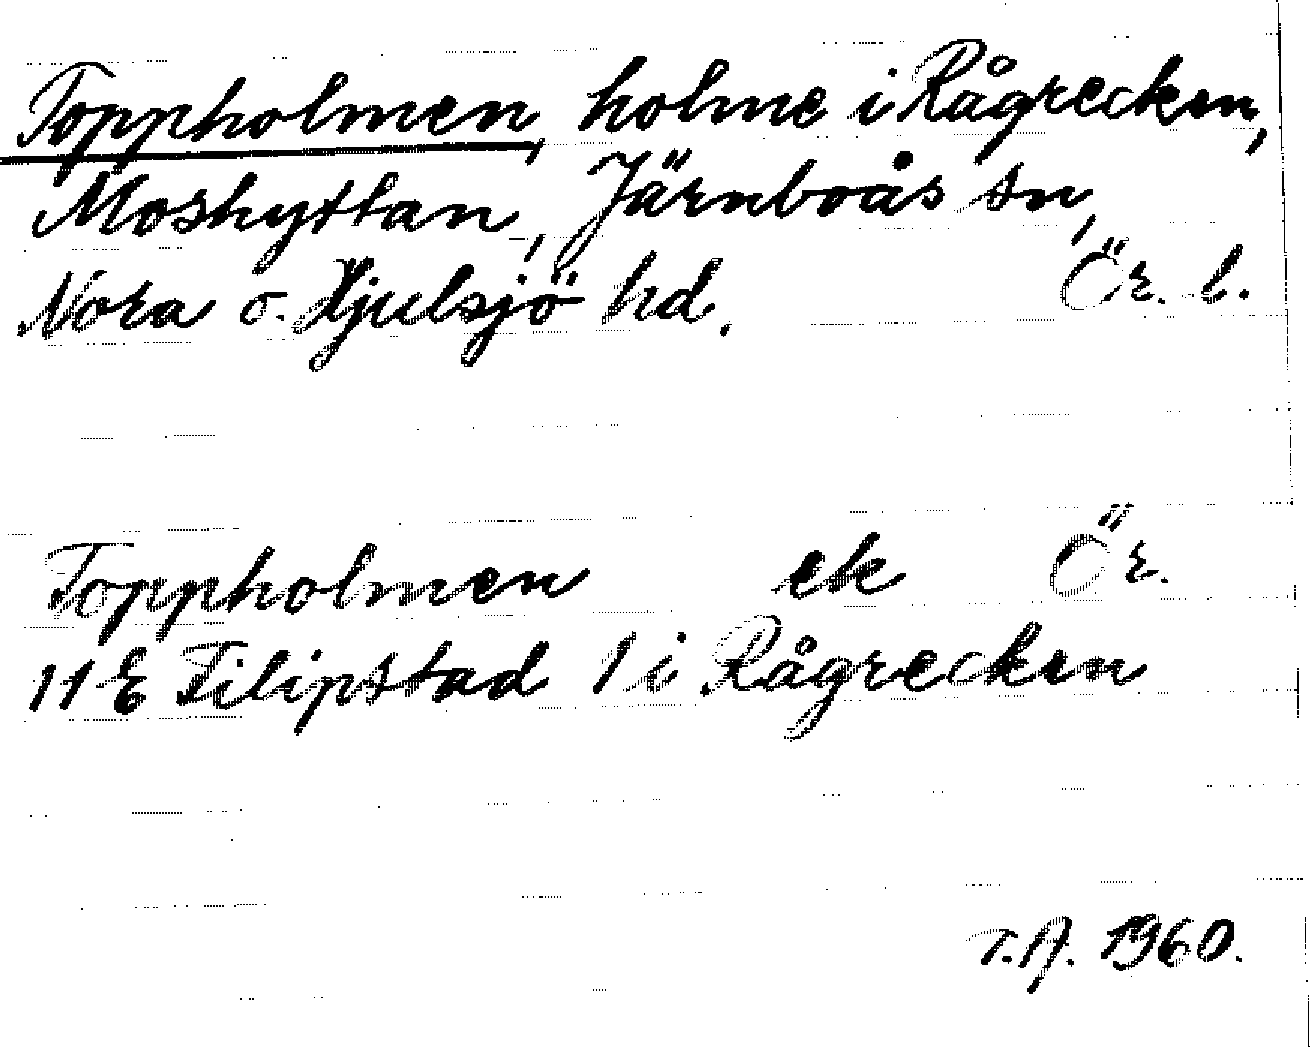 Toppholmen, holme i Rågrecken,
Moshyttan, Järnboås sn,
Nora o. Hjulsjö hd. Ör. l.
Toppholmen ek Ör.
11E Filipstad 1 i Rågrecken
T.A. 1960.